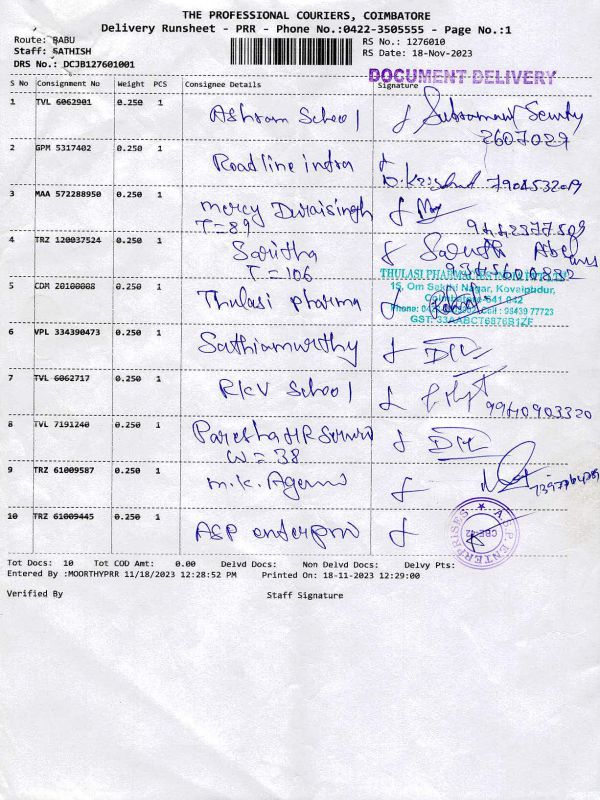 THE PROFESSIONAL COURIERS, COIMBATORE
Delivery Runsheet - PRR - Phone No.:0422-3505555 - Page No.:1
Route: BABU
RS No.: 1276010
Staff: SATHISH
RS Date: 18-Nov-2023
DRS No.: DCJB127601001
DOCUMENT DELIVERY
S No Consignment No Weight PCS Consignee Details Signature
1 TVL 6062901 0.250 1 Ashram School
2607029
2 GPM 5317402 0.250 1 Roadline infra
7904532019
3 MAA 572288950 0.250 1 mercy Duraisingh
T=89 9442377509
4 TRZ 120037524 0.250 1 Saritha
T=106
THULASI PHARMA
15, Om Sakthi Nagar, Kovaipudur,
Coimbatore 641 042
5 CDM 20100008 0.250 1 Thulasi pharma
: 98439 77723
GST: 33AABCT6876B1ZF
6 VPL 334390473 0.250 1 Sathiamurthy
7 TVL 6062717 0.250 1 RKV School
9940903320
8 TVL 7191240 0.250 1
W=38
9 TRZ 61009587 0.250 1 m.k.
10 TRZ 61009445 0.250 1 ASP enterpri
A.S.P. ENTERPRISES
Tot Docs: 10 Tot COD Amt: 0.00 Delvd Docs: Non Delvd Docs: Delvy Pts:
Entered By :MOORTHYPRR 11/18/2023 12:28:52 PM Printed On: 18-11-2023 12:29:00
Verified By Staff Signature